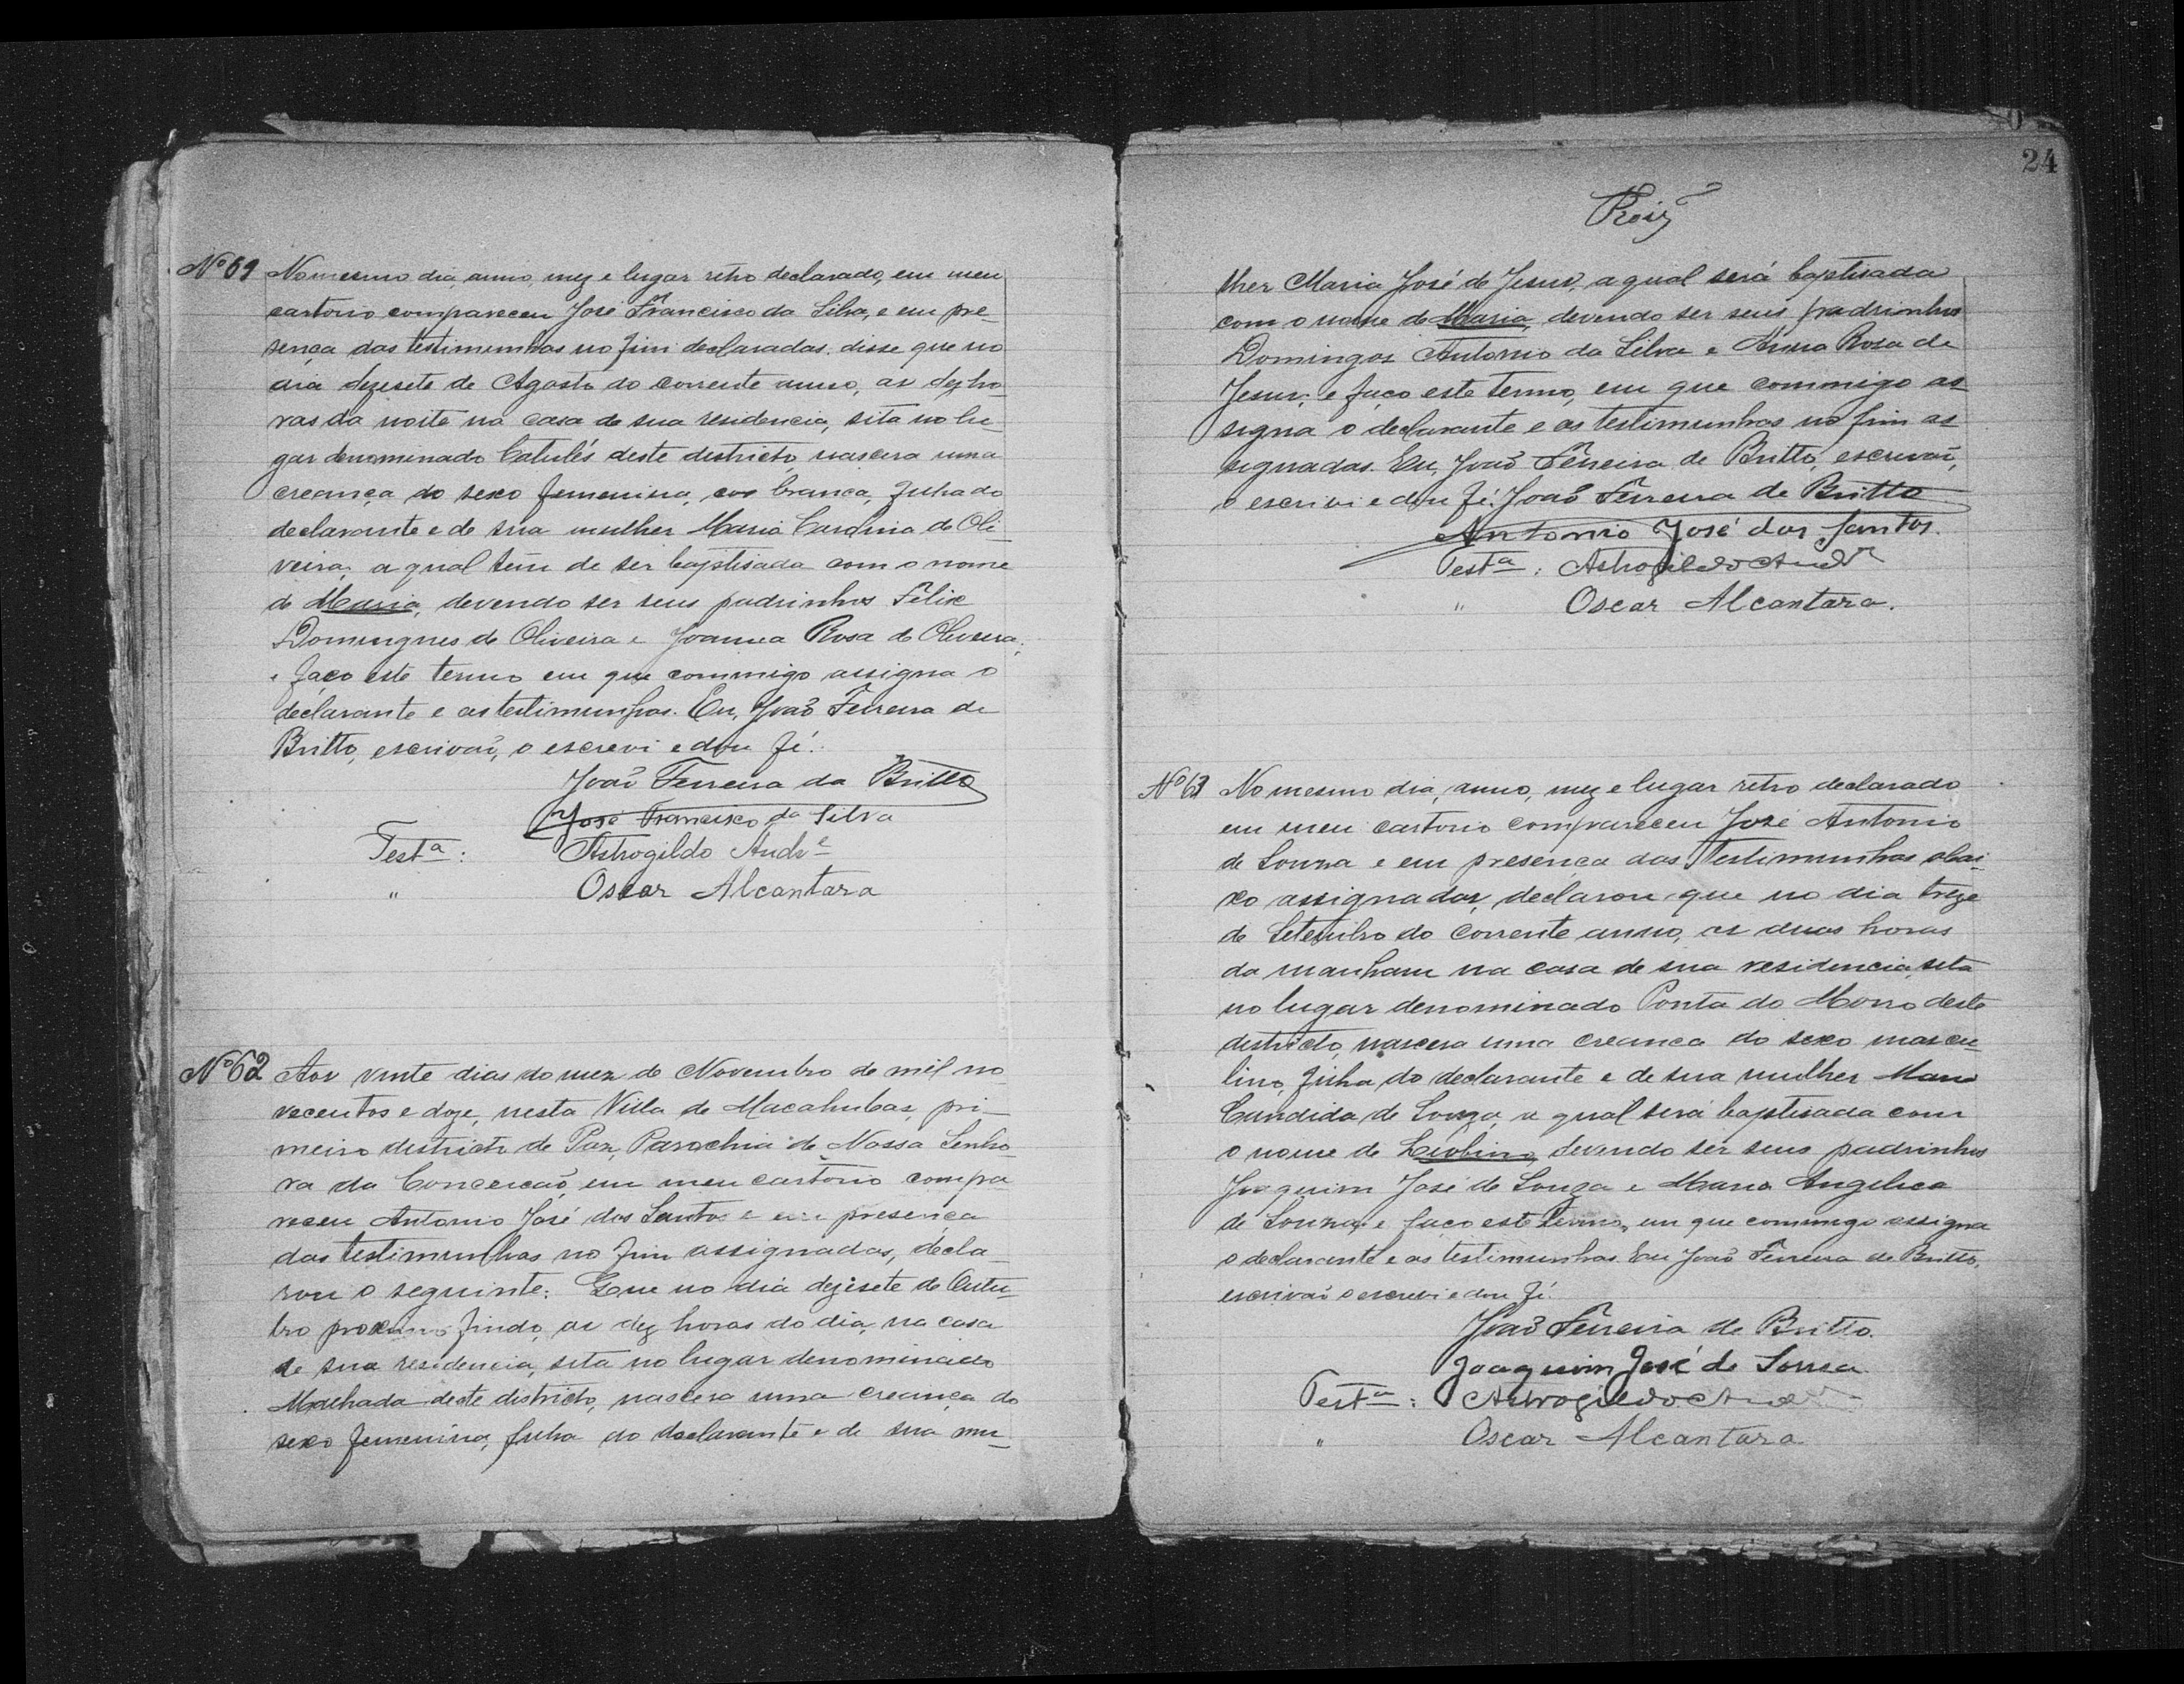 Nº 61 No mesmo dia, anno, mez e lugar retro declarado, em meu
cartorio compareceu José Francisco da Silva, e em pre-
sença das testimunhas no fim declaradas. disse que no
dia dezesete de Agosto do corrente anno, as dez ho-
ras da noite na casa de sua residencia, sita no lu-
gar denominado Catulés deste districto, nascera uma
creança do sexo femenina, cor branca, filha do
declarante e de sua mulher Maria Carolina de Oli-
veira; a qual tem de ser baptisada com o nome
de Maria, devendo ser seus padrinhos Felix
Domingues de Oliveira e Joanna Rosa de Oliveira;
e faço este termo em que commigo assigna o
declarante e as testimunhas. Eu, João Ferreira de
Britto, escrivaõ, o escrevi e dou fé.
João Ferreira da Britto
José Francisco da Silva
Testª: Astrogildo Andr.e
" Oscar Alcantara
Nº 62 Aos vinte dias do mez de Novembro de mil no
vecentos e doze, nesta Villa de Macahubas, pri-
meiro districto de Paz, Parochia de Nossa Senho-
ra da Conceicaõ, em meu cartorio compa-
receu Antonio José dos Santos e em presença
das testimunhas no fim assignadas, decla-
rou o seguinte: Que no dia dezesete de Outu-
bro proximo findo, as dez horas do dia, na casa
de sua residencia, sita no lugar denominado
Machada deste districto, nascera uma creança do
sexo femenina, filha do declarante e de sua mu-
24
lher Maria José de Jesus, a qual será baptisada
com o nome de Maria, devendo ser seus padrinhos
Domingos Antonio da Silva e Anna Rosa de
Jesus; e faço este termo, em que commigo as
signa o declarante e as testimunhas no fim as
signadas. Eu, João Ferreira de Britto, escrivaõ,
o escrivi e dou fé. João Ferreira de Britto
Antonio José dos Santos.
Testª: Astrogildo
" Oscar Alcantara.
Nº 63 No mesmo dia, anno, mez e lugar retro declarado
em meu cartorio compareceu José Antonio
de Souza e em presença das testimunhas abai-
xo assignadas, declarou que no dia treze
de Setembro do corrente anno, as duas horas
da manham na casa de sua residencia, sita
no lugar denominado Ponta do Morro deste
districto, nascera uma creança do sexo mascu-
lino, filha do declarante e de sua mulher Maria
Candida de Souza, a qual será baptisada com
o nome de devendo ser seus padrinhos
Joaquim José de Souza e Maria Angelica
de Souza, e faço este termo, em que commigo assigna
o declarante e as testimunhas. Eu João Ferreira de Britto,
escrivaõ o escrevi e dou fé.
João Ferreira de Britto.
Joaquim José de Sousa
Testª: Astrogildo
" Oscar Alcantara